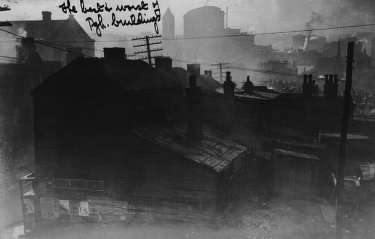 The best & worst of
Pgh. buildings